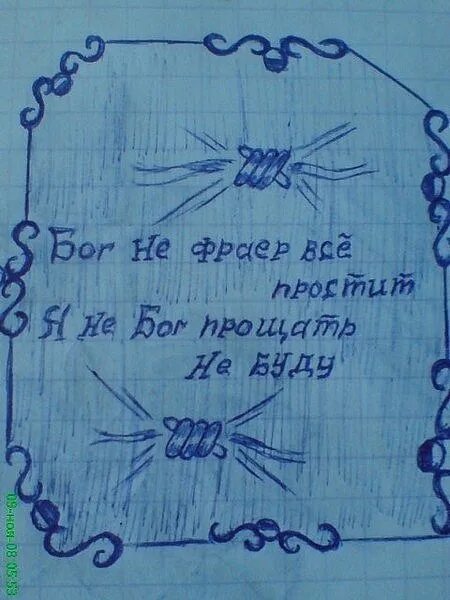 Бог не фраер всё
простит
Я не Бог прощать
не буду
09-ноя-08 05:53